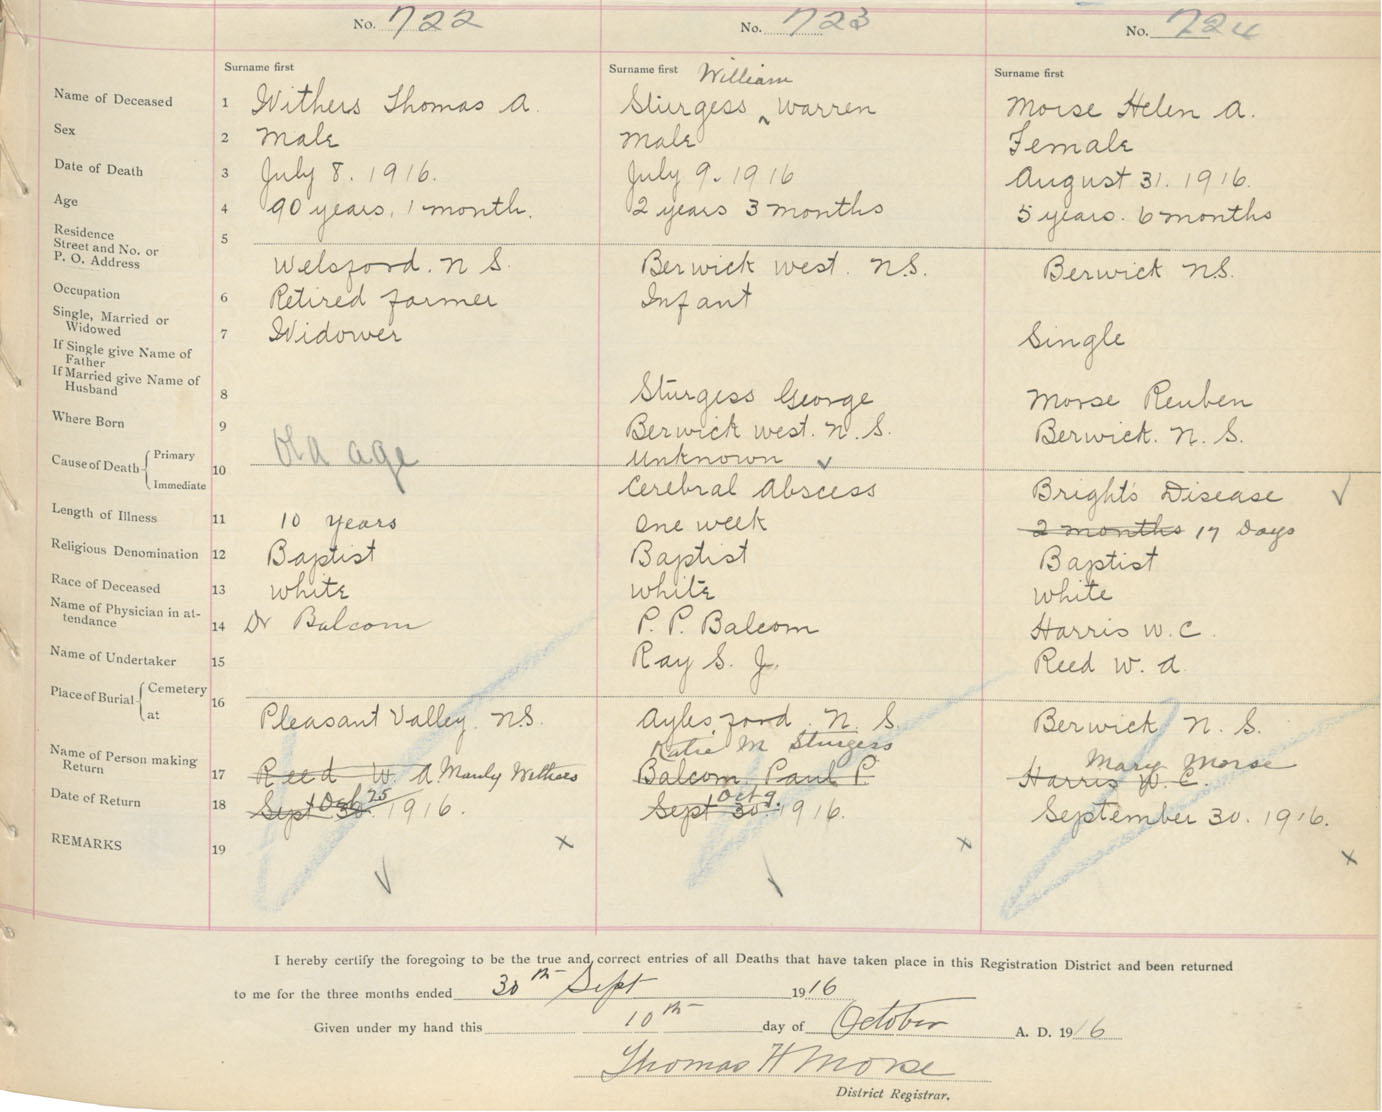 No. 722
No. 723
No. 724
Surname first
Surname first William
Surname first
Name of Deceased 1 Withers Thomas A. Sturgess ‸ Warren Morse Helen A.
Sex 2 male male Female
Date of Death 3 July 8. 1916. July 9. 1916 August 31. 1916.
Age 4 90 years, 1 month. 2 years 3 months 5 years. 6 months
Residence 5
Street and No. or
P. O. Address Welsford. N S. Berwick west. N.S. Berwick N.S.
Occupation 6 Retired farmer Infant
Single, Married or
Widowed 7 Widower Single
If Single give Name of
Father
If Married give Name of
Husband 8 Sturgess George Morse Reuben
Where Born 9 Berwick west. N. S. Berwick. N. S.
Cause of Death { Primary old age unknown ✓
10
Immediate Cerebral Abscess Bright's Disease ✓
Length of Illness 11 10 years one week 2 months 17 Days
Religious Denomination 12 Baptist Baptist Baptist
Race of Deceased 13 white white white
Name of Physician in at-
tendance 14 Dr Balcom P. P. Balcom Harris W. C.
Name of Undertaker 15 Ray S. J. Reed W. A.
Place of Burial { Cemetery 16
at Pleasant Valley. N.S. Aylesford. N. S. Berwick N. S.
Katie M Sturgess Mary Morse
Name of Person making
Return 17 Reed W. A Manly Withers Balcom Paul P. Harris W. C.
Oct 25 Oct 9.
Date of Return 18 Sept 30. 1916. Sept 30. 1916. September 30. 1916.
REMARKS 19 x x x
✓ ✓
I hereby certify the foregoing to be the true and correct entries of all Deaths that have taken place in this Registration District and been returned
to me for the three months ended 30th Sept 1916
Given under my hand this 10th day of October A. D. 1916
Thomas H Morse
District Registrar.